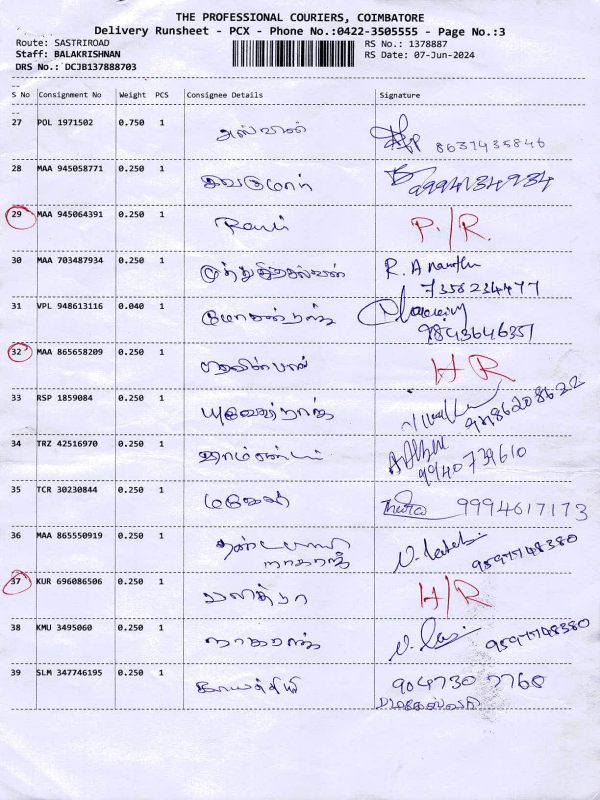 THE PROFESSIONAL COURIERS, COIMBATORE
Delivery Runsheet - PCX - Phone No.:0422-3505555 - Page No.:3
Route: SASTRIROAD RS No.: 1378887
Staff: BALAKRISHNAN RS Date: 07-Jun-2024
DRS No.: DCJB137888703
S No Consignment No Weight PCS Consignee Details Signature
27 POL 1971502 0.750 1 அஸ்வின் 8637435846
28 MAA 945058771 0.250 1
29 MAA 945064391 0.250 1 Ravi P./R.
30 MAA 703487934 0.250 1 R. Ananthi
7358234477
31 VPL 948613116 0.040 1 மோகன்ராஜ்
9843646351
32 MAA 865658209 0.250 1 H R
33 RSP 1859084 0.250 1 யுவேஷ்ராஜ்
34 TRZ 42516970 0.250 1
9940739610
35 TCR 30230844 0.250 1 மகேஷ் 9994617173
36 MAA 865550919 0.250 1 9597748380
நாகராஜ்
37 KUR 696086506 0.250 1 H/R
38 KMU 3495060 0.250 1 நாகராஜ் 9597748380
39 SLM 347746195 0.250 1 காயத்திரி 904730 7760